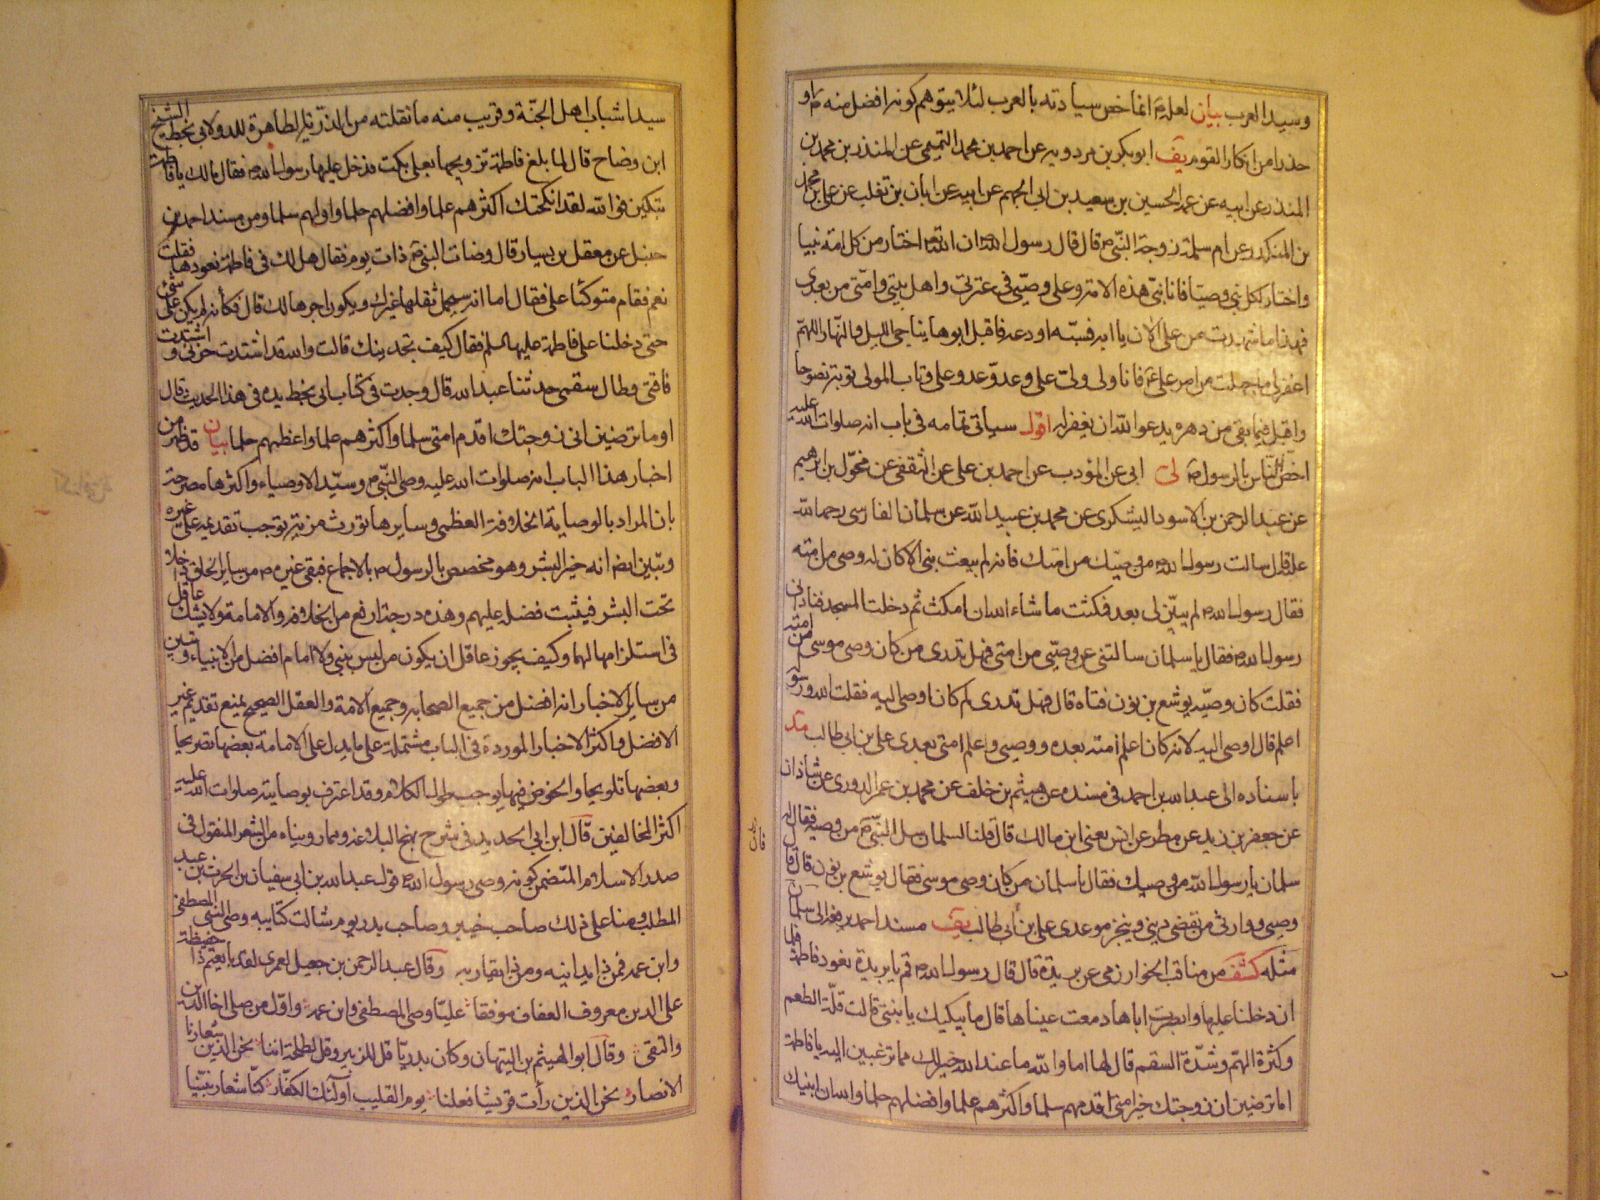 وسيد العرب بيان لعله انما خص سيادته بالعرب لئلا يتوهم كونه افضل منه او
حذرا من انكار القوم يف ابو بكر بن مردويه عن احمد بن محمد التميمي عن المنذر بن محمد بن
المنذر عن ابيه عن عمه الحسين بن سعيد بن ابى الجهم عن ابيه عن ابان بن تغلب عن على بن محمد
بن المنكدر عن ام سلمة زوجة النبى قال قال رسول الله ان الله اختار من كل امة نبيا
واختار لكل نبى وصيا فانا نبى هذه الامة وعلى وصيى فى عترتى واهل بيتى وامتى من بعدى
فهذا ما شهدت من على الان يا ابه فسبه او دعه فاقبل ابوها يناجى الليل والنهار اللهم
اغفر لى ما جهلت من امر على فانا ولى ولى على وعدو عدو على وتاب المولى توبة نصوحا
واقبل فيما بقى من دهره يدعو الله ان يغفر له اقول سياتى تمامه فى باب انه صلوات الله عليه
اخص الناس بالرسول لى ابى عن المؤدب عن احمد بن على عن الثقفى عن مخول بن ابرهيم
عن عبد الرحمن بن الاسود اليشكرى عن محمد بن عبيد الله عن سلمان الفارسى رحمه الله
عليه قال سالت رسول الله من وصيك من امتك فانه لم يبعث نبى الا كان له وصى من امته
فقال رسول الله لم يبين لى بعد فمكثت ما شاء الله ان امكث ثم دخلت المسجد فنادانى
رسول الله فقال يا سلمان سالتنى عن وصيى من امتى فهل تدرى من كان وصى موسى من امته
فقلت كان وصيه يوشع بن نون فتاه قال فهل تدرى لم كان اوصى اليه فقلت الله ورسوله
اعلم قال اوصى اليه لانه كان اعلم امته بعده ووصيى واعلم امتى بعدى على بن ابى طالب مد
باسناده الى عبد الله بن احمد فى مسنده عن هيثم بن خلف عن محمد بن عمر الدورى عن شاذان
عن جعفر بن زيد عن مطر عن انس يعنى ابن مالك قال قلنا لسلمان سل النبى من وصيه فقال له
سلمان يا رسول الله من وصيك فقال يا سلمان من كان وصى موسى فقال يوشع بن نون قال قال
وصيى ووارثى من يقضى دينى وينجز موعدى على بن ابى طالب يف مسند احمد يرفعه الى سلمان
مثله كشف من مناقب الخوارزمى عن بريدة قال قال رسول الله قم يا بريدة نعود فاطمة فلما
ان دخلنا عليها وابصرت اباها دمعت عيناها قال ما يبكيك يا بنتى قالت قلة الطعم
وكثرة الهم وشدة السقم قال لها اما والله ما عند الله خير لك مما ترغبين اليه يا فاطمة
اما ترضين ان زوجتك خير امتى اقدمهم سلما واكثرهم علما وافضلهم حلما والله ان ابنيك
سيدا شباب اهل الجنة وقريب منه ما نقلته من الذرية الطاهرة للدولابى بخط الشيخ
ابن وضاح قال لما بلغ فاطمة تزويجها بعلى بكت فدخل عليها رسول الله فقال مالك يا فاطمة
تبكين فوالله لقد انكحتك اكثرهم علما وافضلهم حلما واولهم سلما ومن مسند احمد بن
حنبل عن معقل بن يسار قال وضات النبى ذات يوم فقال هل لك فى فاطمة نعودها فقلت
نعم فقام متوكئا على فقال اما انه سيحمل ثقلها غيرك ويكون اجرها لك قال فكأنه لم يكن على شئ
حتى دخلنا على فاطمة عليها السلم فقال كيف تجدينك قالت والله لقد اشتدت حزنى واشتدت
فاقتى وطال سقمى حدثنا عبد الله قال وجدت فى كتاب ابى بخط يده فى هذا الحديث قال
او ما ترضين انى زوجتك اقدم امتى سلما واكثرهم علما واعظمهم حلما بيان قد ظهر من
اخبار هذا الباب انه صلوات الله عليه وصى النبى وسيد الاوصياء واكثرها مصرحة
بان المراد بالوصاية الخلافة العظمى وسايرها تورث مزية توجب تقديمه على غيره
وتبين ايضا انه خير البشر وهو مخصص بالرسول بالاجماع فبقى غيره من ساير الخلق داخلا
تحت البشر فيثبت فضله عليهم وهذه درجة ارفع من الخلافة والامامة ولا يشك عاقل
فى استلزامها لهما وكيف يجوز عاقل ان يكون من ليس بنبى ولا امام افضل من الانبياء وتبين
من ساير الاخبار انه افضل من جميع الصحابة وجميع الامة والعقل الصحيح يمنع تقديم غير
الافضل واكثر الاخبار الموردة فى الباب مشتملة على ما يدل على الامامة بعضها تصريحا
وبعضها تلويحا والخوض فيها يوجب طول الكلام وقد اعترف بوصايته صلوات الله عليه
اكثر المخالفين قال ابن ابى الحديد فى شرح نهج البلاغة ومما رويناه من الشعر المنقول فى
صدر الاسلام المتضمن كونه وصى رسول الله قول عبد الله بن ابى سفيان بن الحرث بن عبد
المطلب ومنا على ذلك صاحب خيبر وصاحب بدر يوم سالت كتايبه وصى النبى المصطفى
وابن عمه فمن ذا يدانيه ومن ذا يقاربه وقال عبد الرحمن بن جعيل لعمرى لقد بايعتم ذا حفيظة
على الدين معروف العفاف موفقا عليا وصى المصطفى وابن عمه واول من صلى اخا الدين
والتقى وقال ابو الهيثم بن التيهان وكان بدريا قل للزبير وقل لطلحة اننا نحن الذين شعارنا
الانصار نحن الذين رأت قريش فعلنا يوم القليب اولئك الكفار كنا شعار نبينا